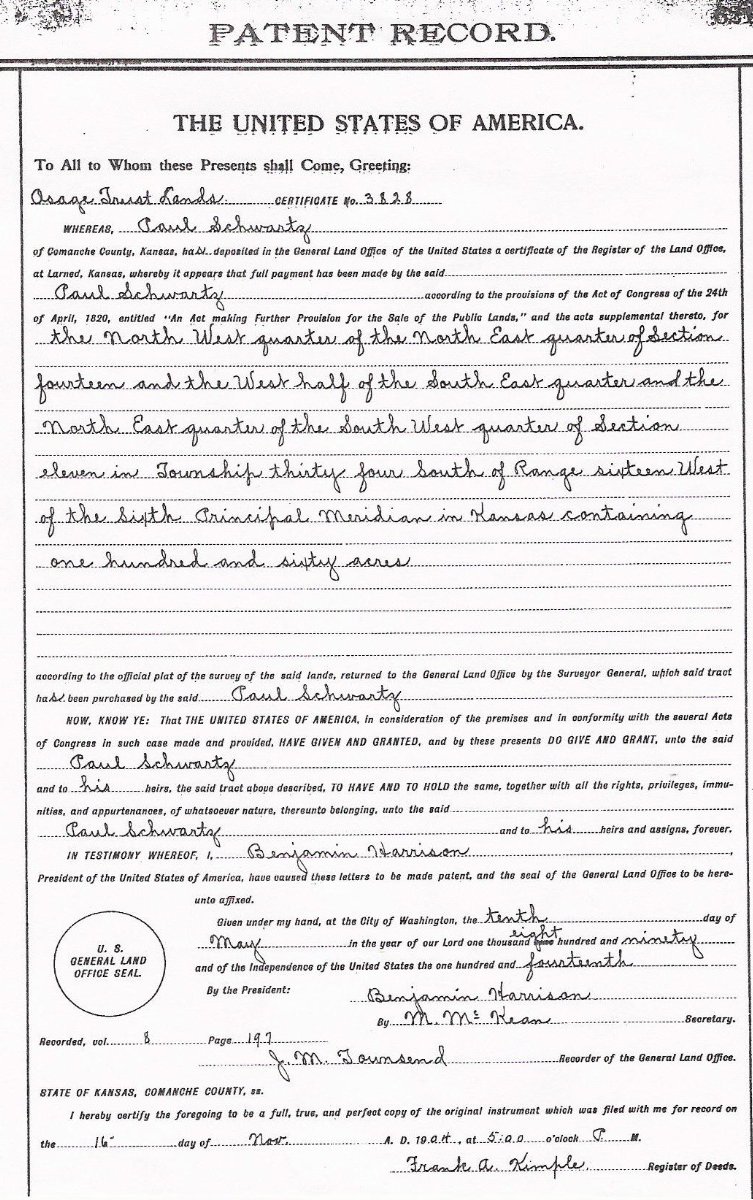 PATENT RECORD.
THE UNITED STATES OF AMERICA.
To All to Whom these Presents shall Come, Greeting:
Osage Trust Lands CERTIFICATE No. 3828
WHEREAS, Paul Schwartz
of Comanche County, Kansas, has deposited in the General Land Office of the United States a certificate of the Register of the Land Office,
at Larned, Kansas, whereby it appears that full payment has been made by the said
Paul Schwartz according to the provisions of the Act of Congress of the 24th
of April, 1820, entitled "An Act making Further Provision for the Sale of the Public Lands," and the acts supplemental thereto, for
the North West quarter of the North East quarter of Section
fourteen and the West half of the South East quarter and the
North East quarter of the South West quarter of Section
eleven in Township thirty four South of Range sixteen West
of the Sixth Principal Meridian in Kansas containing
one hundred and sixty acres
according to the official plat of the survey of the said lands, returned to the General Land Office by the Surveyor General, which said tract
has been purchased by the said Paul Schwartz
NOW, KNOW YE: That THE UNITED STATES OF AMERICA, in consideration of the premises and in conformity with the several Acts
of Congress in such case made and provided, HAVE GIVEN AND GRANTED, and by these presents DO GIVE AND GRANT, unto the said
Paul Schwartz
and to his heirs, the said tract above described, TO HAVE AND TO HOLD the same, together with all the rights, privileges, immu-
nities, and appurtenances, of whatsoever nature, thereunto belonging, unto the said
Paul Schwartz and to his heirs and assigns, forever.
IN TESTIMONY WHEREOF, I, Benjamin Harrison,
President of the United States of America, have caused these letters to be made patent, and the seal of the General Land Office to be here-
unto affixed.
Given under my hand, at the City of Washington, the tenth day of
May in the year of our Lord one thousand eight hundred and ninety
and of the Independence of the United States the one hundred and fourteenth
U. S.
GENERAL LAND
OFFICE SEAL.
By the President: Benjamin Harrison
By M. McKean Secretary.
Recorded, vol. 8 Page 197
J. M. Townsend Recorder of the General Land Office.
STATE OF KANSAS, COMANCHE COUNTY, ss.
I hereby certify the foregoing to be a full, true, and perfect copy of the original instrument which was filed with me for record on
the day of Nov. A. D. 1904, at 5:00 o'clock P. M.
Frank A. Kimple. Register of Deeds.